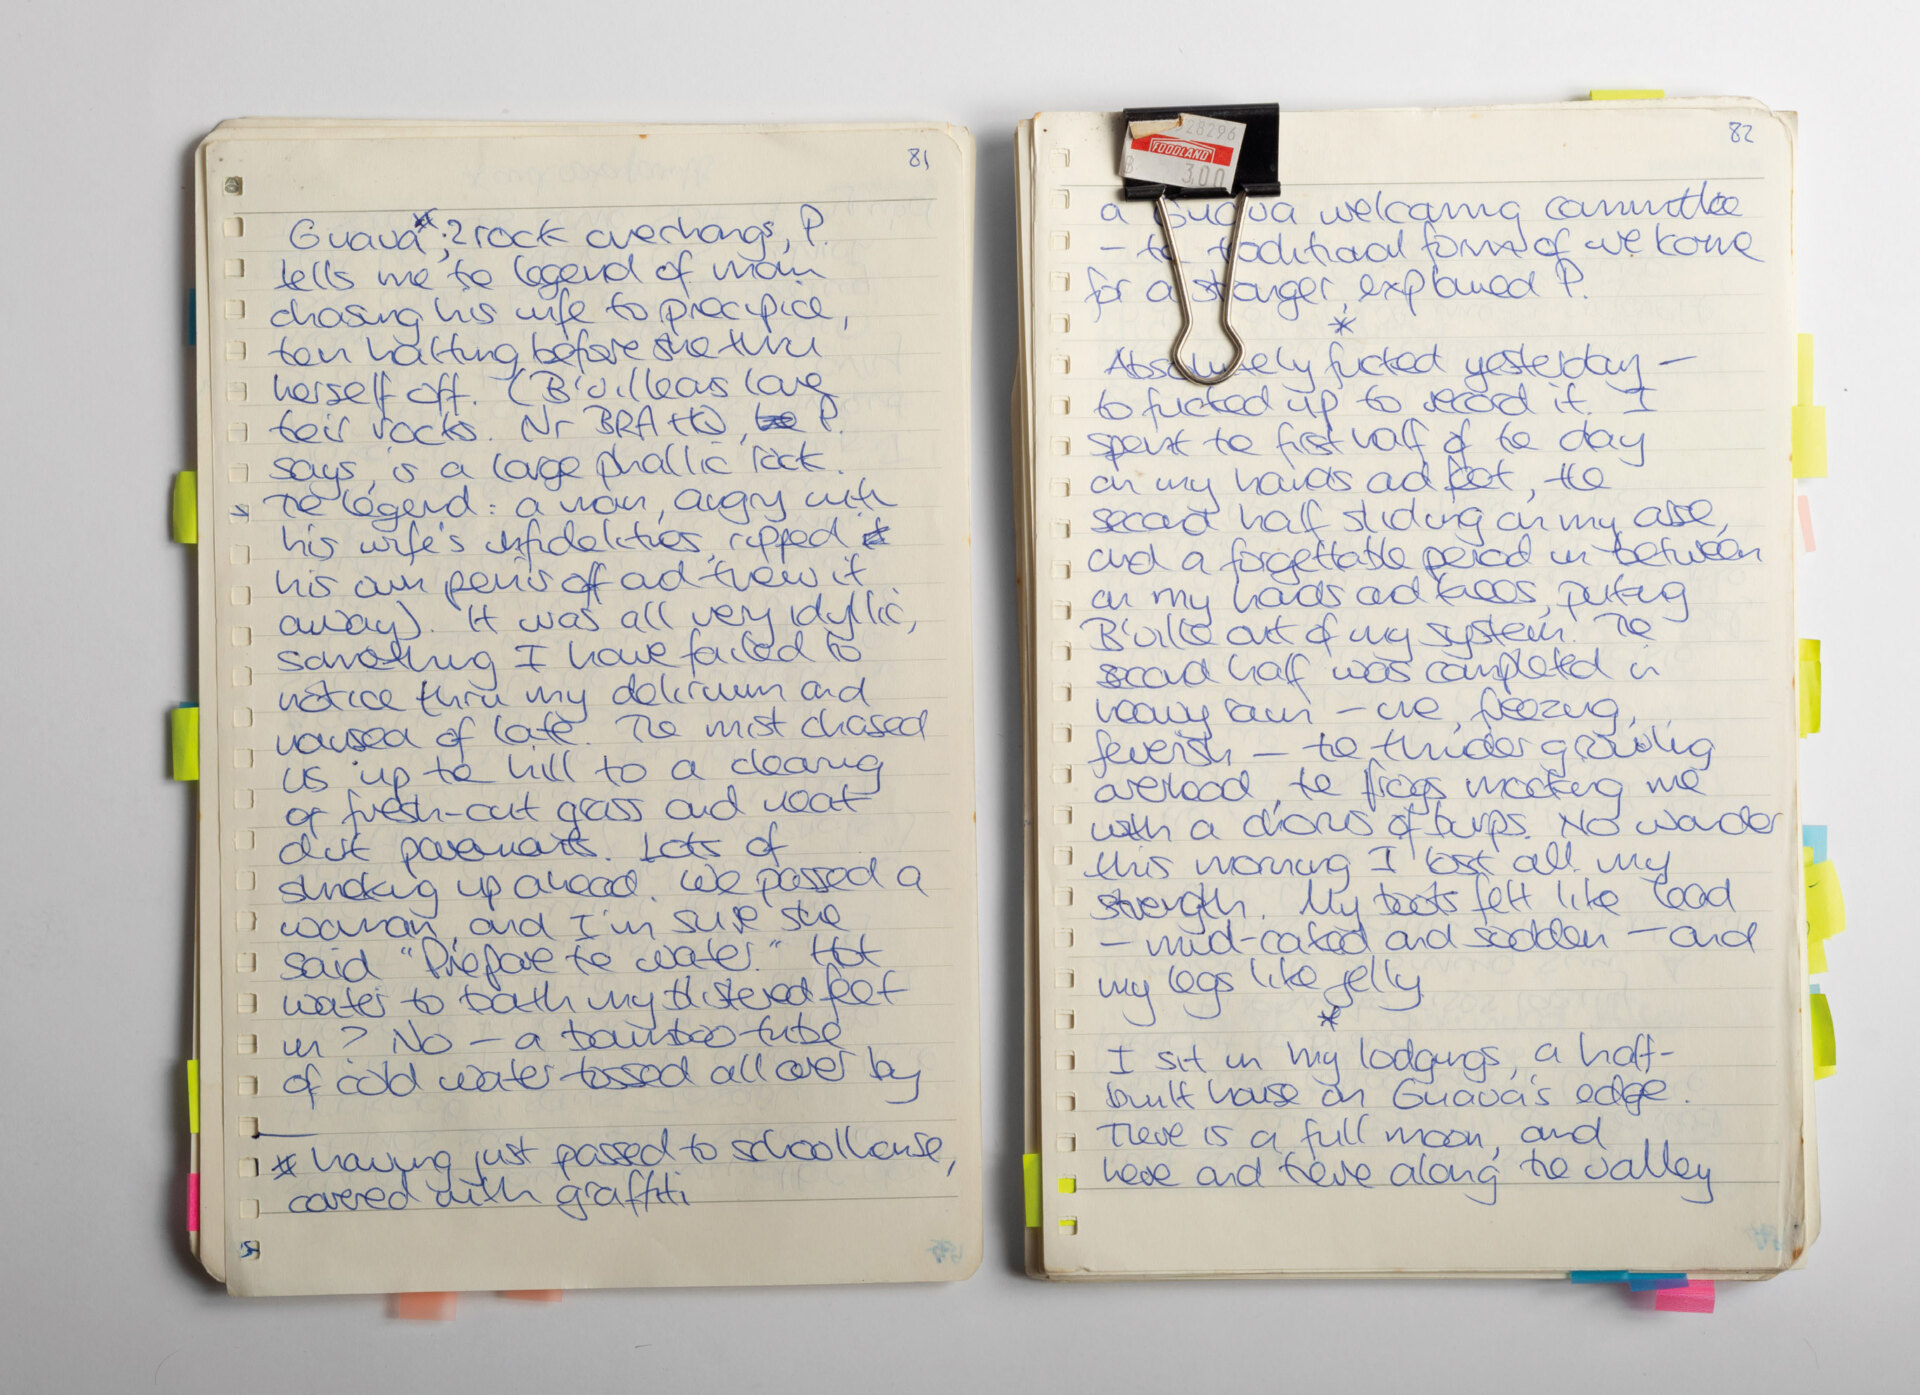 81
Guava*; 2 rock overhangs, P.
tells me te legend of man
chasing his wife to precipice,
ten halting before she thru
herself off. (B'villeans love
teir rocks. Nr BRATTO, P.
says, is a large phallic rock.
Te legend: a man, angry with
his wife's infidelities, ripped
his own penis off ad threw it
away). It was all very idyllic,
something I have failed to
notice thru my delirium and
nausea of late. Te mist chased
us up te hill to a clearing
of fresh-cut grass and neat
dirt pavements. Lots of
smoking up ahead. We passed a
woman, and I'm sure she
said "Prepare te water." Hot
water to bath my blistered feet
in? No – a bamboo-tube
of cold water tossed all over by
* having just passed te schoolhouse,
covered with graffiti
82
28296
FOODLAND
฿ 3.00
a Guava welcoming committee
– te traditional form of welcome
for a stranger, explained P.
*
Absolutely fucked yesterday –
to fucked up to record it. I
spent te first half of te day
on my hands ad feet, the
second half sliding on my arse,
and a forgettable period in between
on my hands and knees, puking
B'ville out of my system. Te
second half was completed in
heavy rain – me, freezing,
feverish – te thunder growling
overhead, te frogs mocking me
with a chorus of burps. No wonder
this morning I lost all my
strength. My boots felt like lead
– mud-caked and sodden – and
my legs like jelly.
*
I sit in my lodgings, a half-
built house on Guava's edge.
There is a full moon, and
here and there along te valley